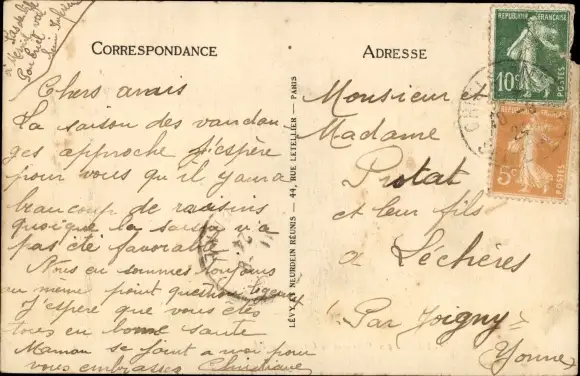 CORRESPONDANCE
Chers amis
La saison des vandan
ges approche j'espère
pour vous qu'il y aura
beaucoup de raisins
quoique la saison n'a
pas été favorable
Nous en sommes toujours
au même point question logeux
J'espère que vous êtes
tous en bonne santé
Maman se joint a moi pour
vous embrasser Christiane
LÉVY ET NEURDEIN RÉUNIS — 44, RUE LETELLIER — PARIS
ADRESSE
Monsieur et
Madame
Protat
et leur fils
a Léchères
Par Joigny
Yonne
REPUBLIQUE FRANÇAISE
10c
POSTES
REPUBLIQUE FRANÇAISE
5c
POSTES